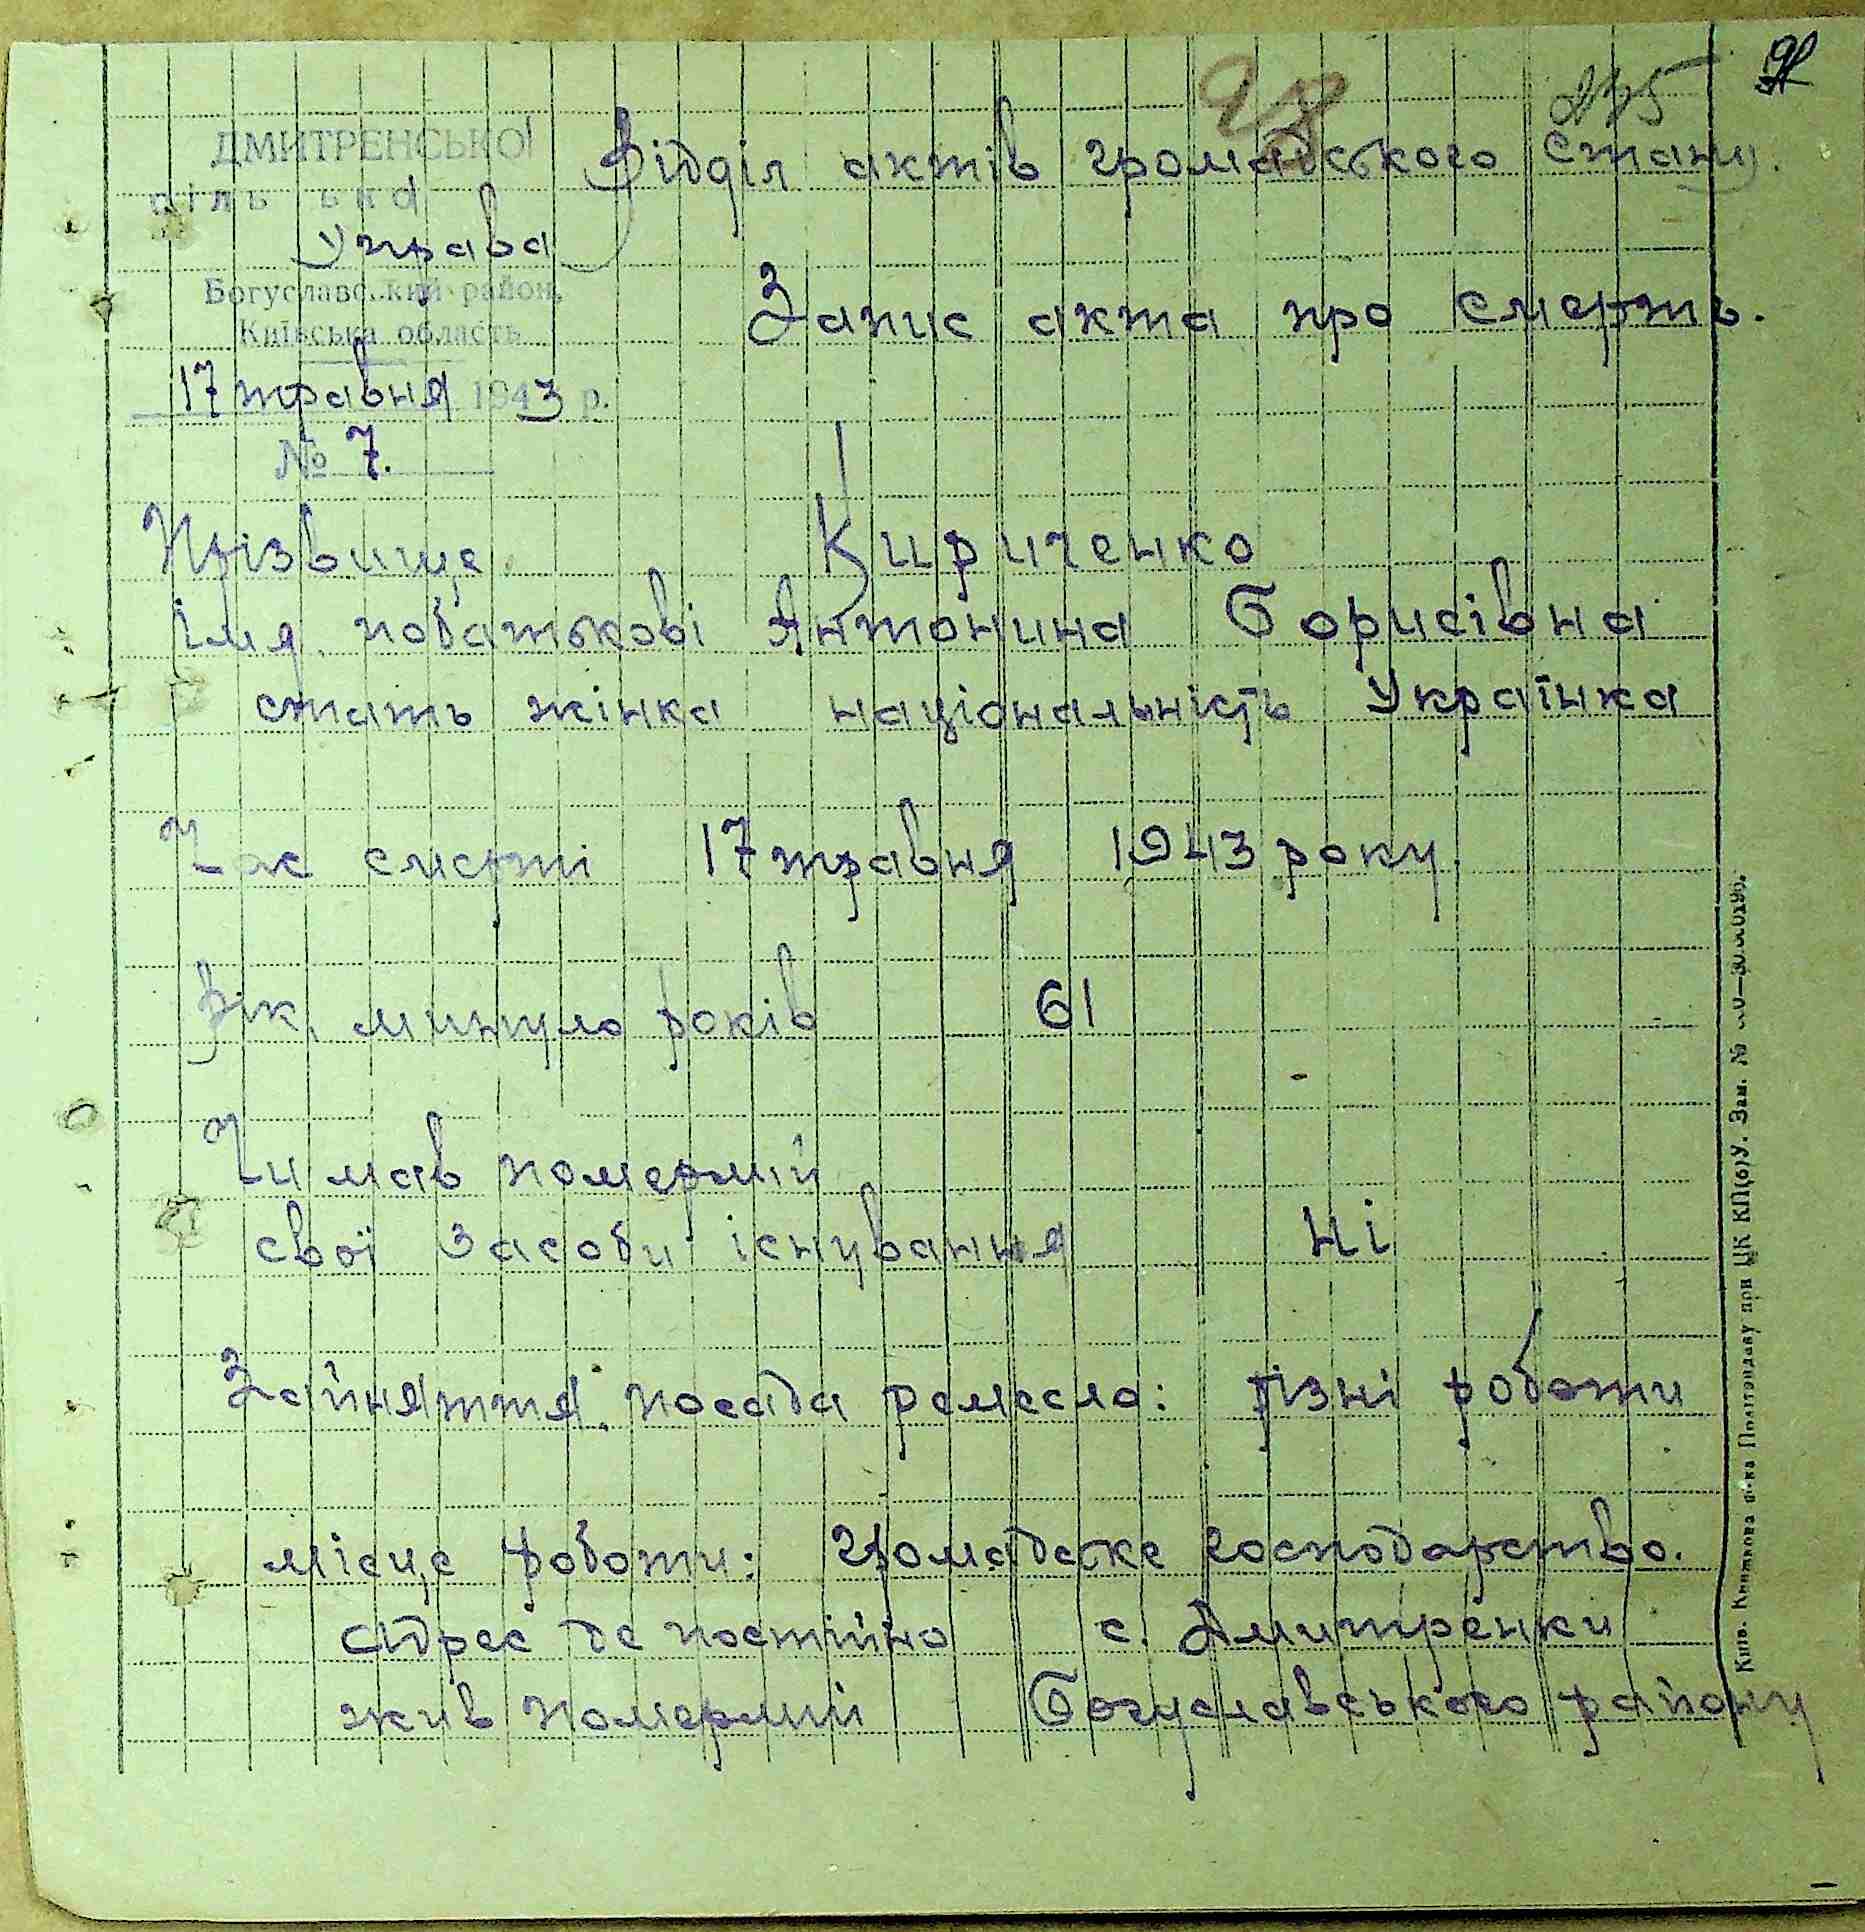 235
Відділ актів громадського стану.
ДМИТРЕНСЬКОІ
Управа
Богуславський район,
Київська область
17 травня 1943 р.
№ 7.
Запис акта про смерть.
Прізвище Кириченко
Імя, побатькові Антонина Борисівна
стать жінка національність Українка
Час смерті 17 травня 1943 року.
Вік, минуло років 61
Чи мав померший
свої засоби існування Ні
Зайняття, посада ремесло: Різні роботи
місце роботи: Громадське господарство.
Адрес де постійно с. Дмитренки
жив померший Богуславського району
Київ. Книжкова ф-ка Політвидаву при ЦК КП(б)У. Зам. №